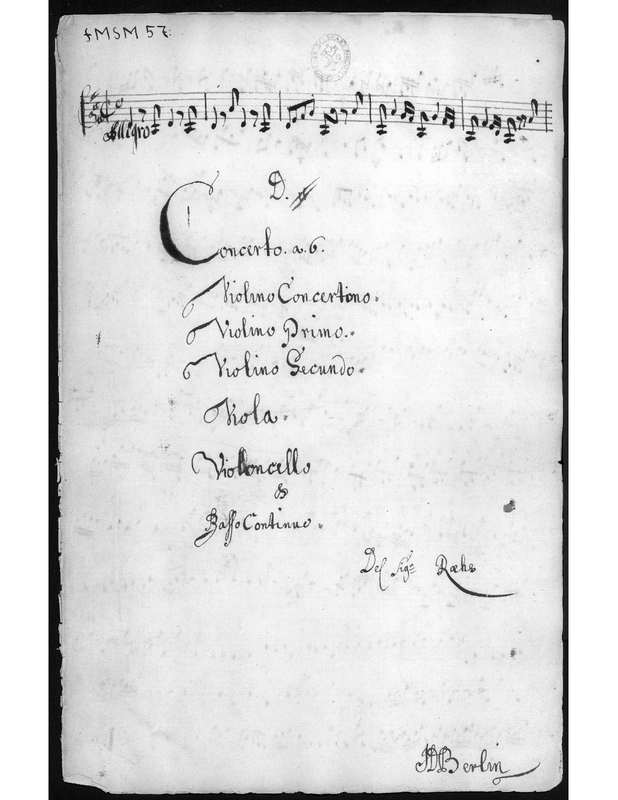 fMSM 57.
Allegro
D. #
Concerto. a. 6.
Violino Concertino.
Violino Primo.
Violino Secundo.
Viola.
Violoncello
&
Basso Continuo.
Del Sigr Ræhs
JDBerlin